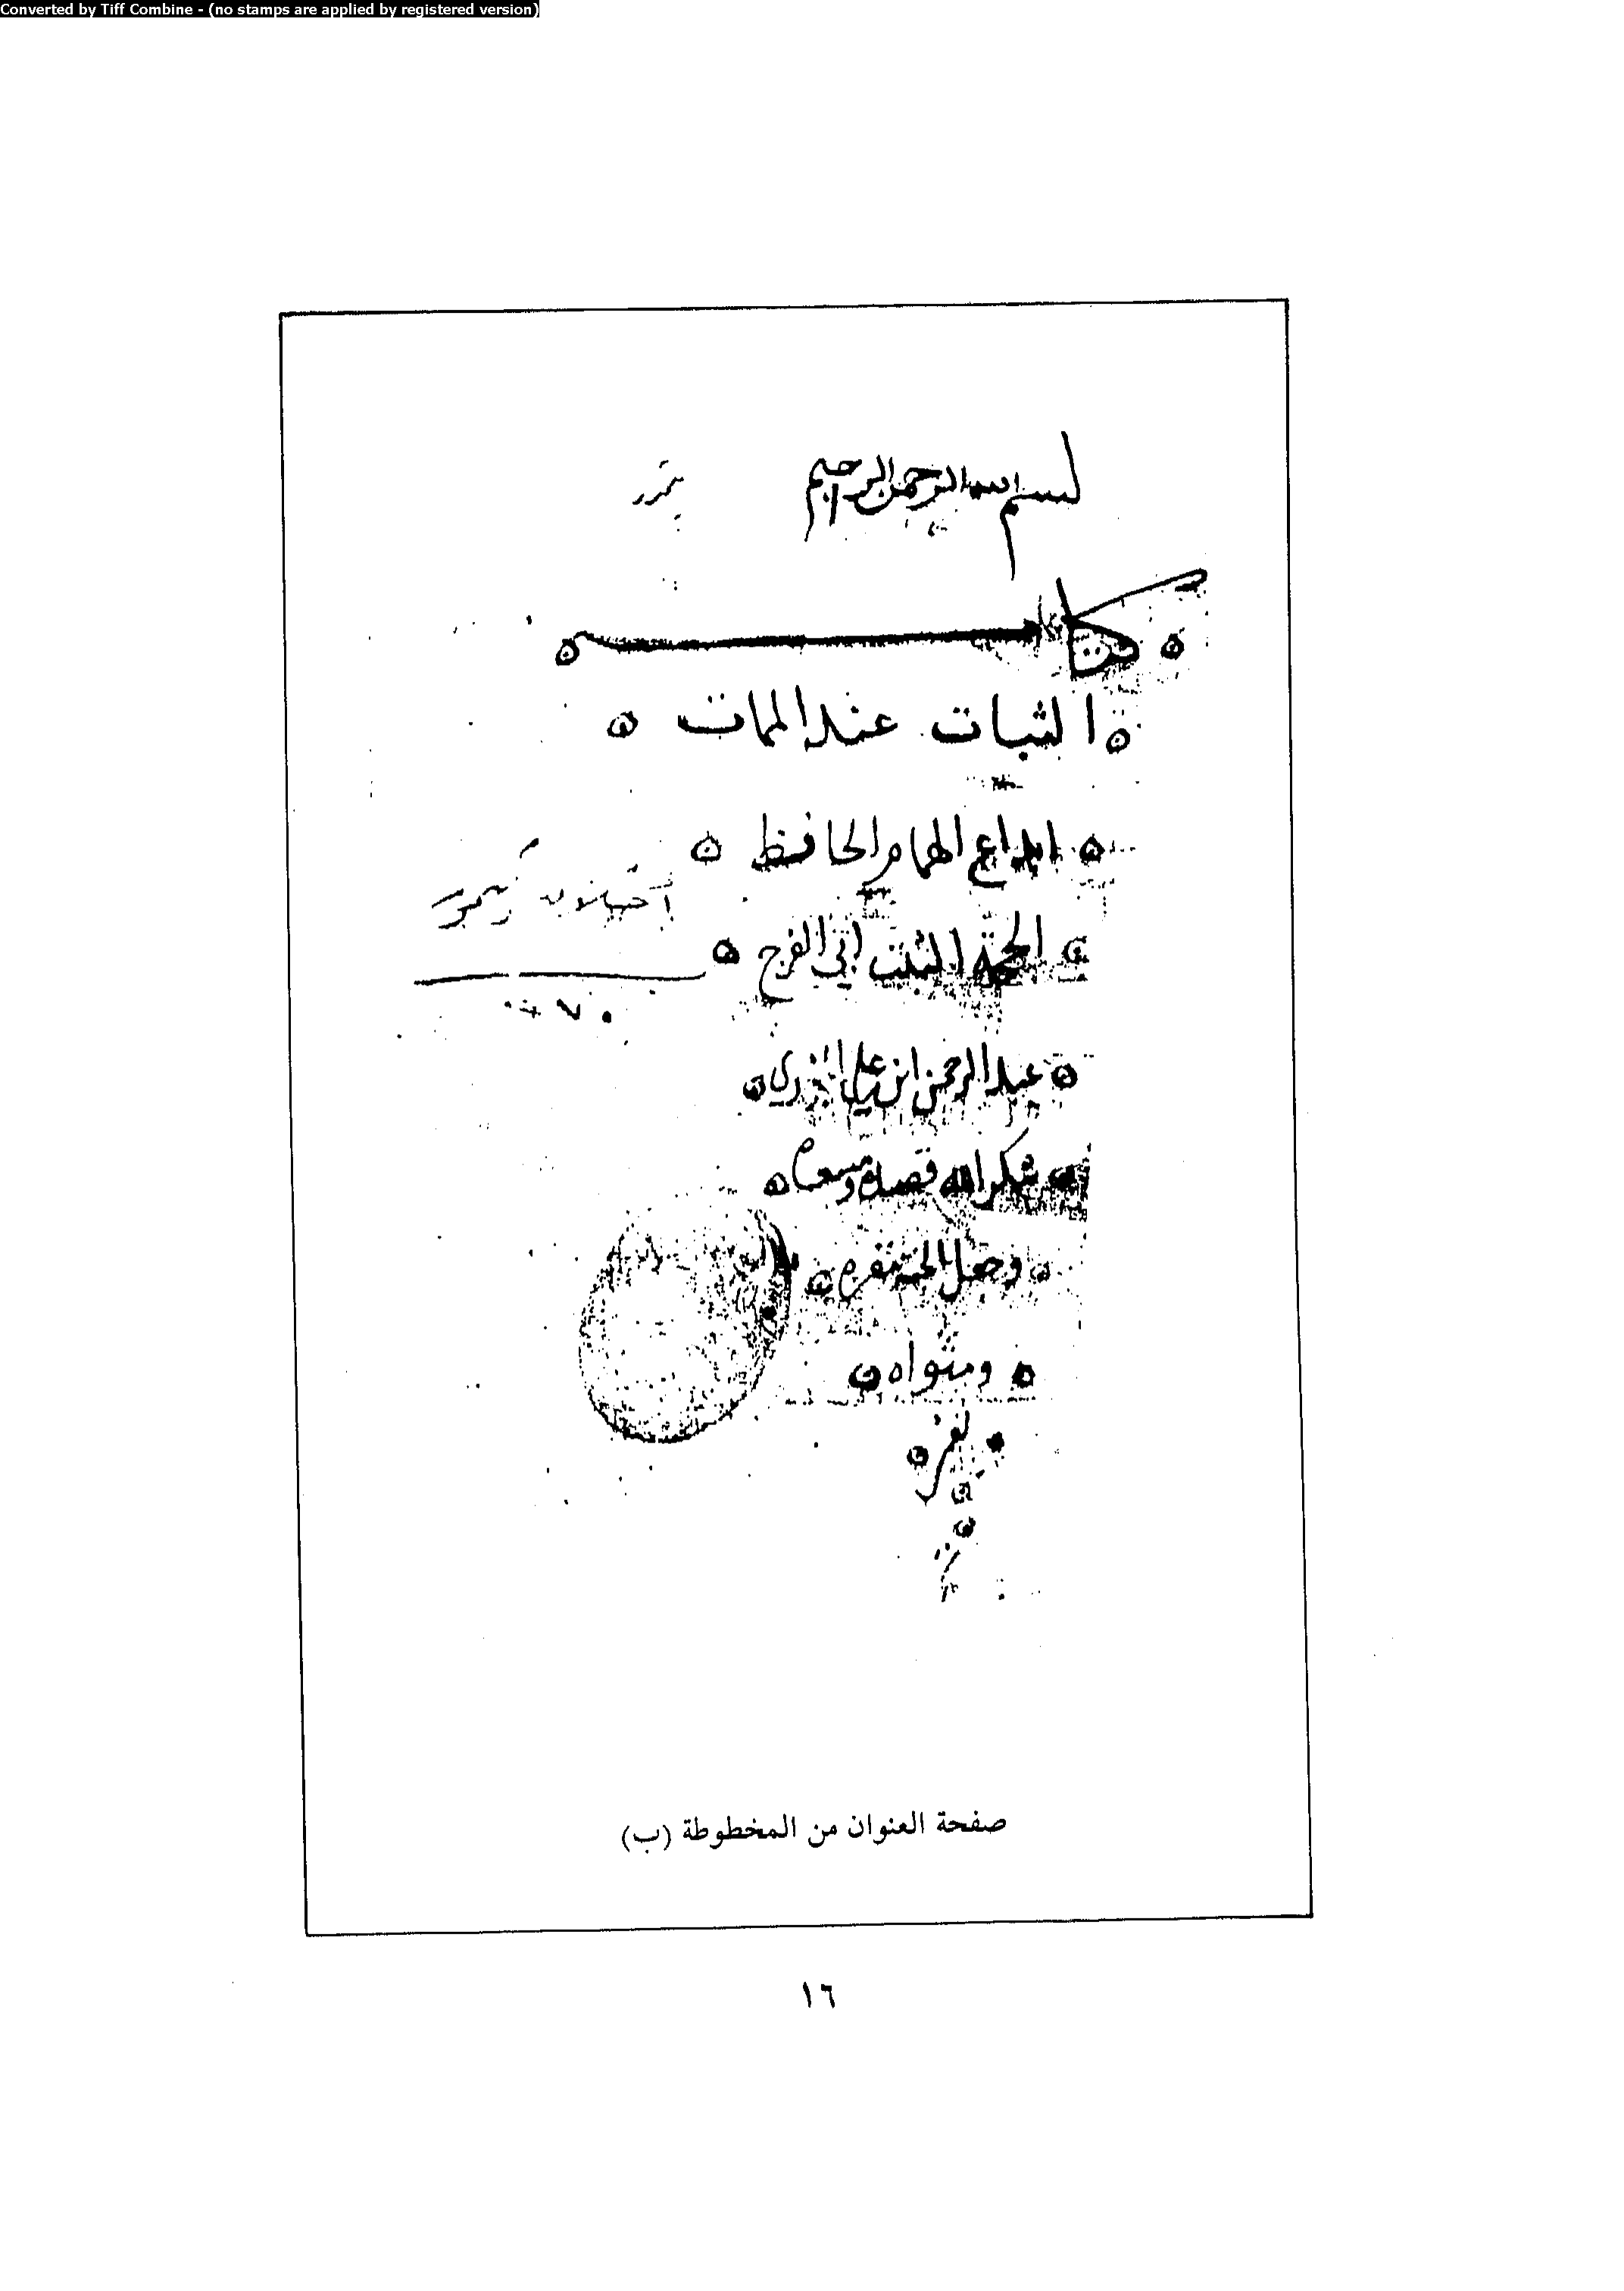 Converted by Tiff Combine - (no stamps are applied by registered version)
بسم الله الرحمن الرحيم
كتاب
الثبات عند الممات
ابداع الهمام الحافظ
الحجة الثبت ابي الفرج
عبد الرحمن ابن علي الجوزي
شكر الله قصده و
وجعل الجنة مقره
ومثواه
صفحة العنوان من المخطوطة (ب)
١٦